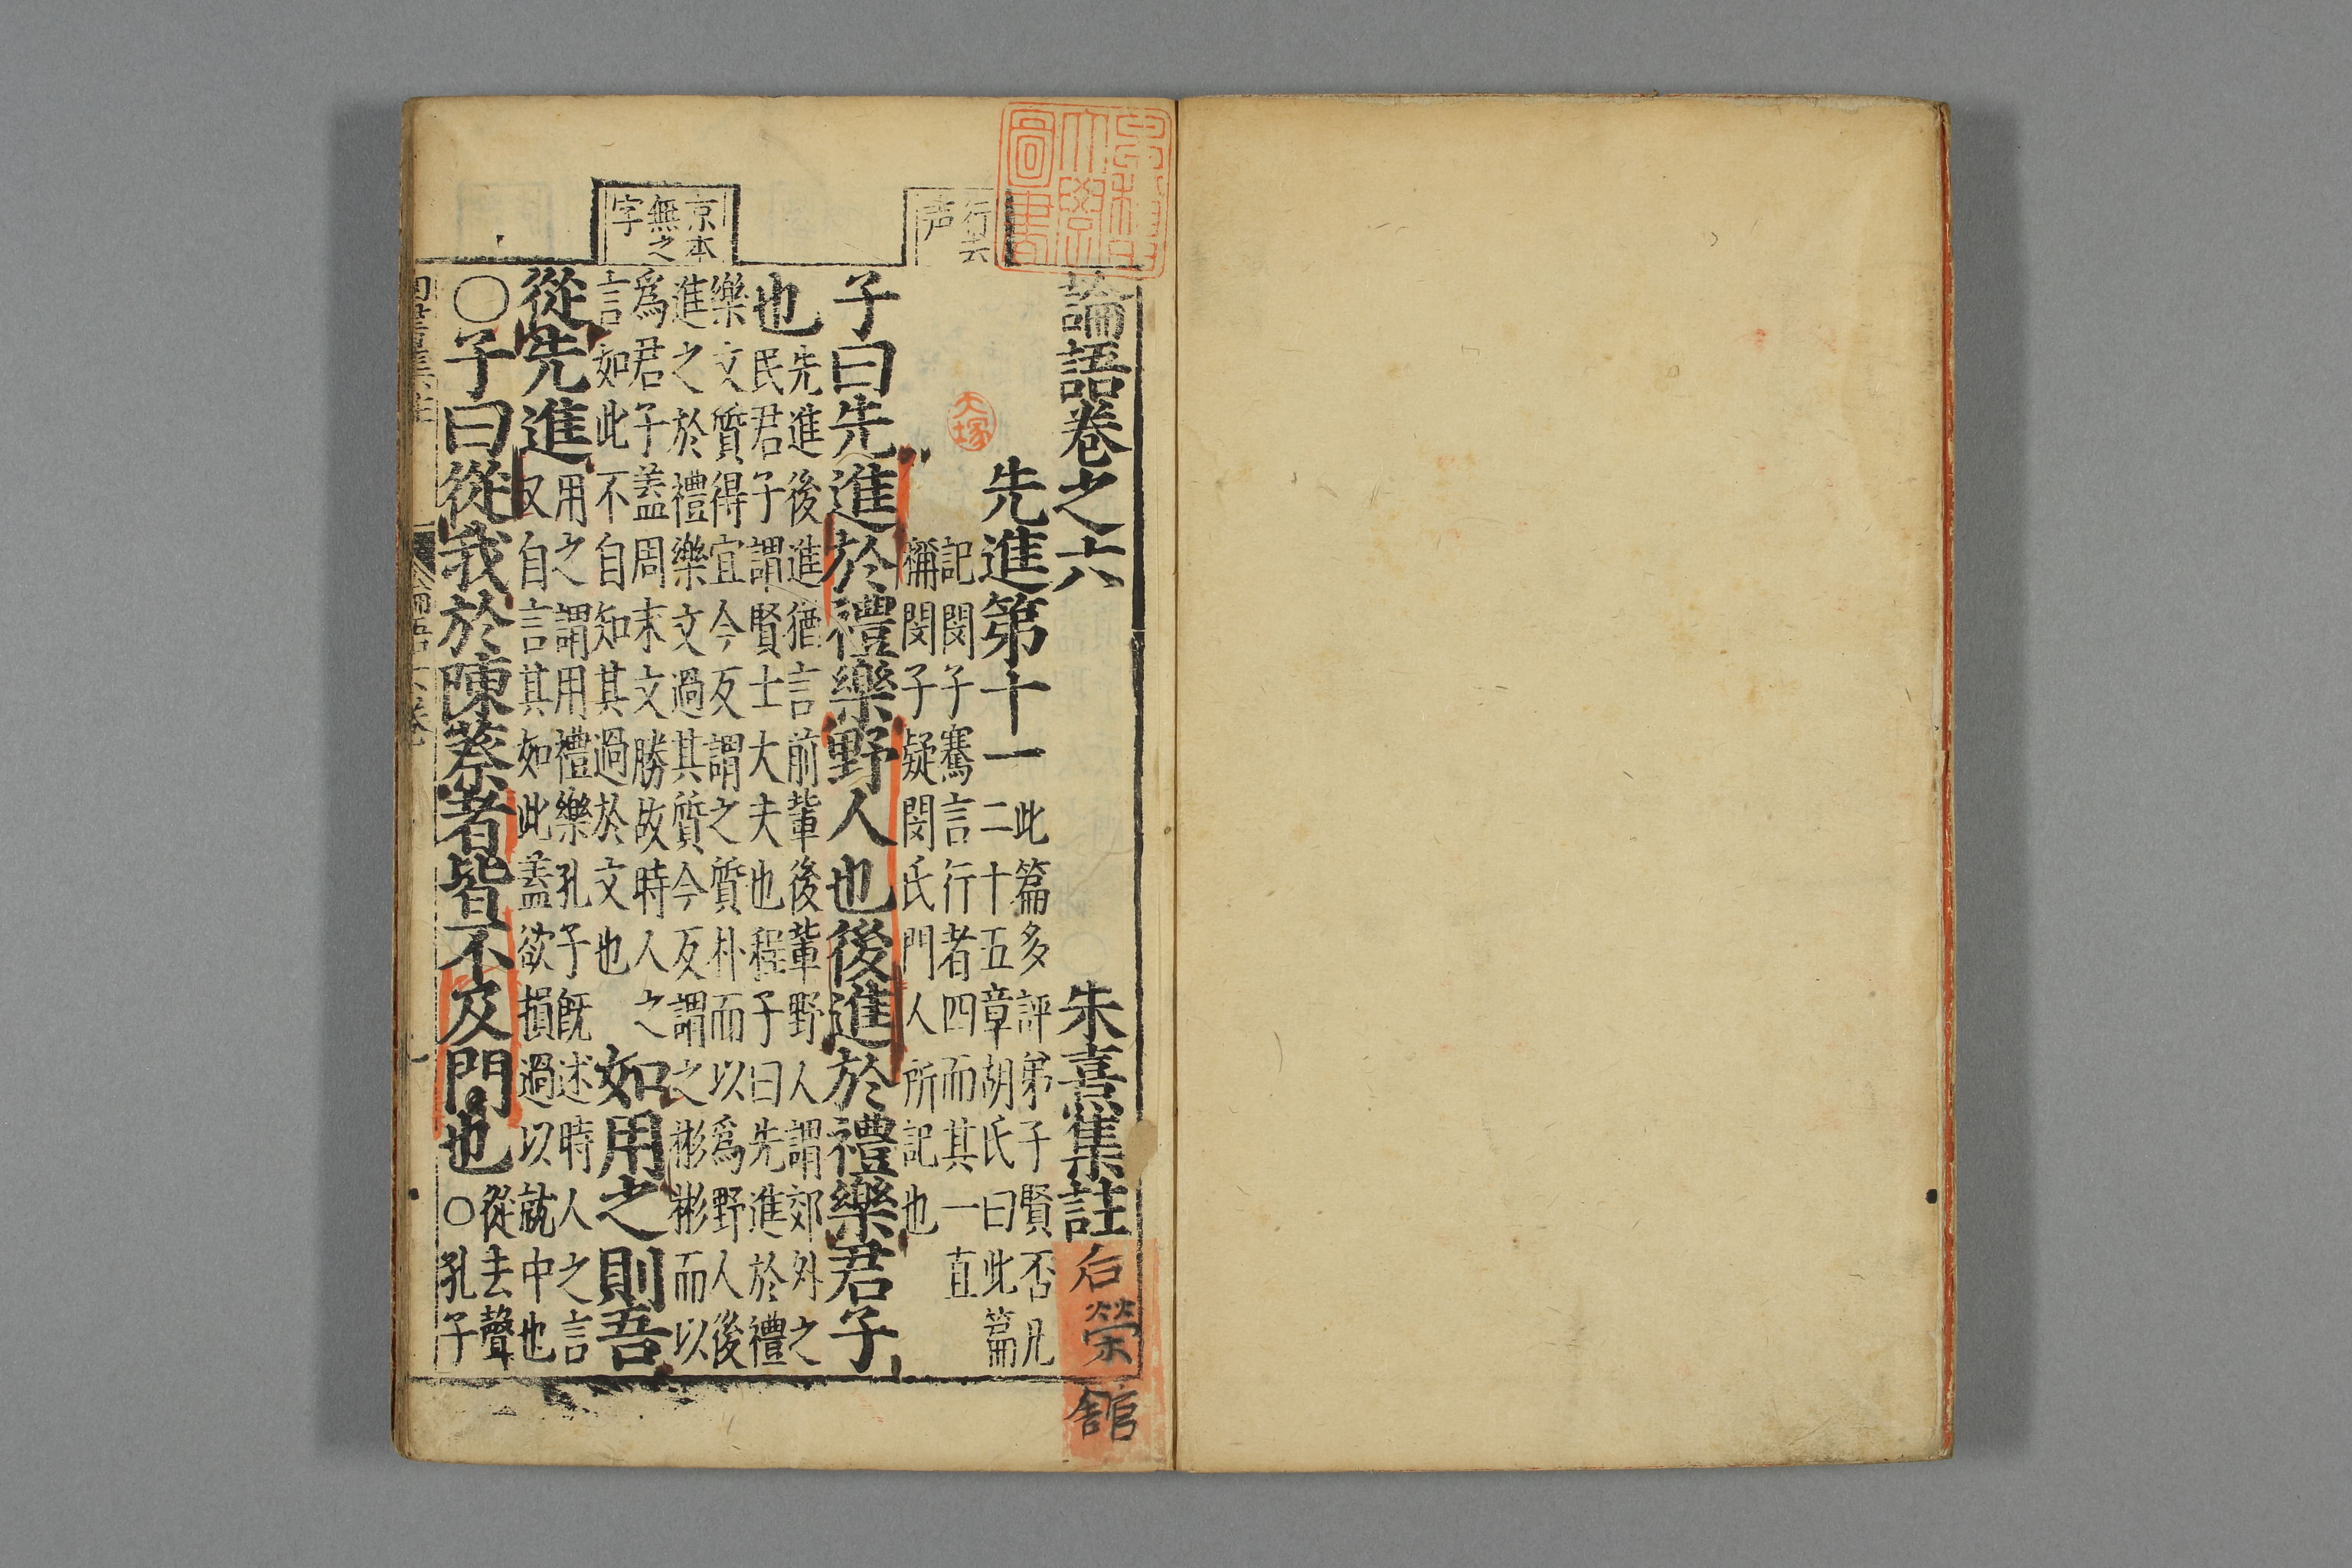 論語卷之六
朱熹集註
石榮館
先進第十一
此篇多評弟子賢否凡
二十五章胡氏曰此篇
記閔子騫言行者四而其一直
稱閔子疑閔氏門人所記也
行去
声
大塚
子曰先進於禮樂野人也後進於禮樂君子
也
先進後進猶言前輩後輩野人謂郊外之
民君子謂賢士大夫也程子曰先進於禮
樂文質得宜今反謂之質朴而以爲野人後
進之於禮樂文過其質今反謂之彬彬而以
爲君子蓋周末文勝故時人之
言如此不自知其過於文也
京本
無之
字
如用之則吾
從先進
用之謂用禮樂孔子旣述時人之言
又自言其如此蓋欲損過以就中也
○子曰從我於陳蔡者皆不及門也
從去聲
○孔子